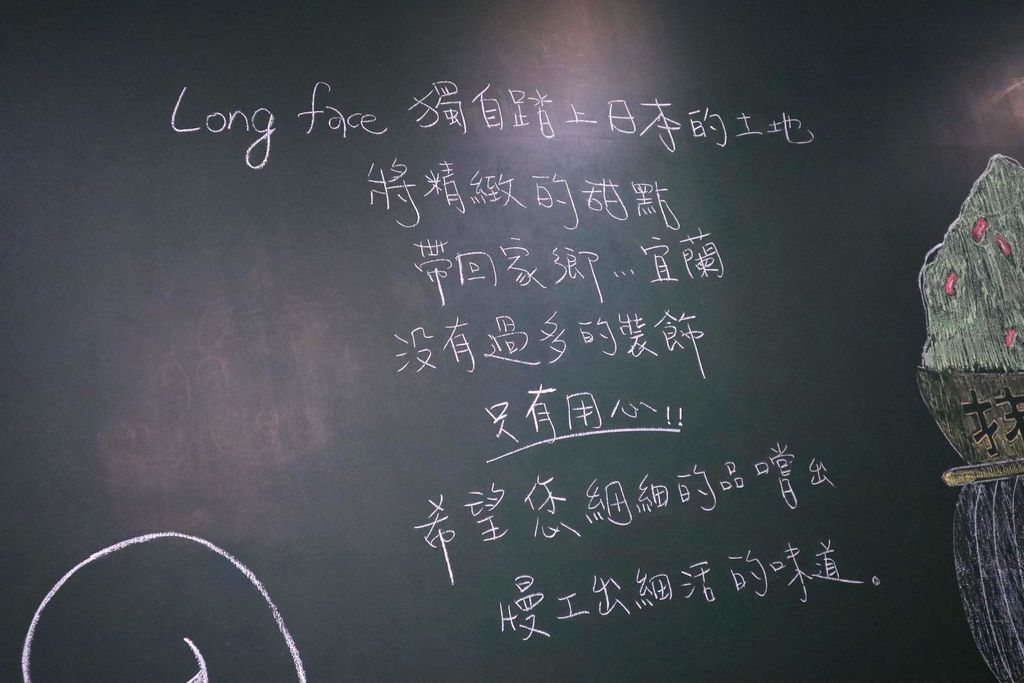 Long face 獨自踏上日本的土地
將精緻的甜點
帶回家鄉...宜蘭
沒有過多的裝飾
只有用心!!
希望您細細的品嚐出
慢工出細活的味道。
抹